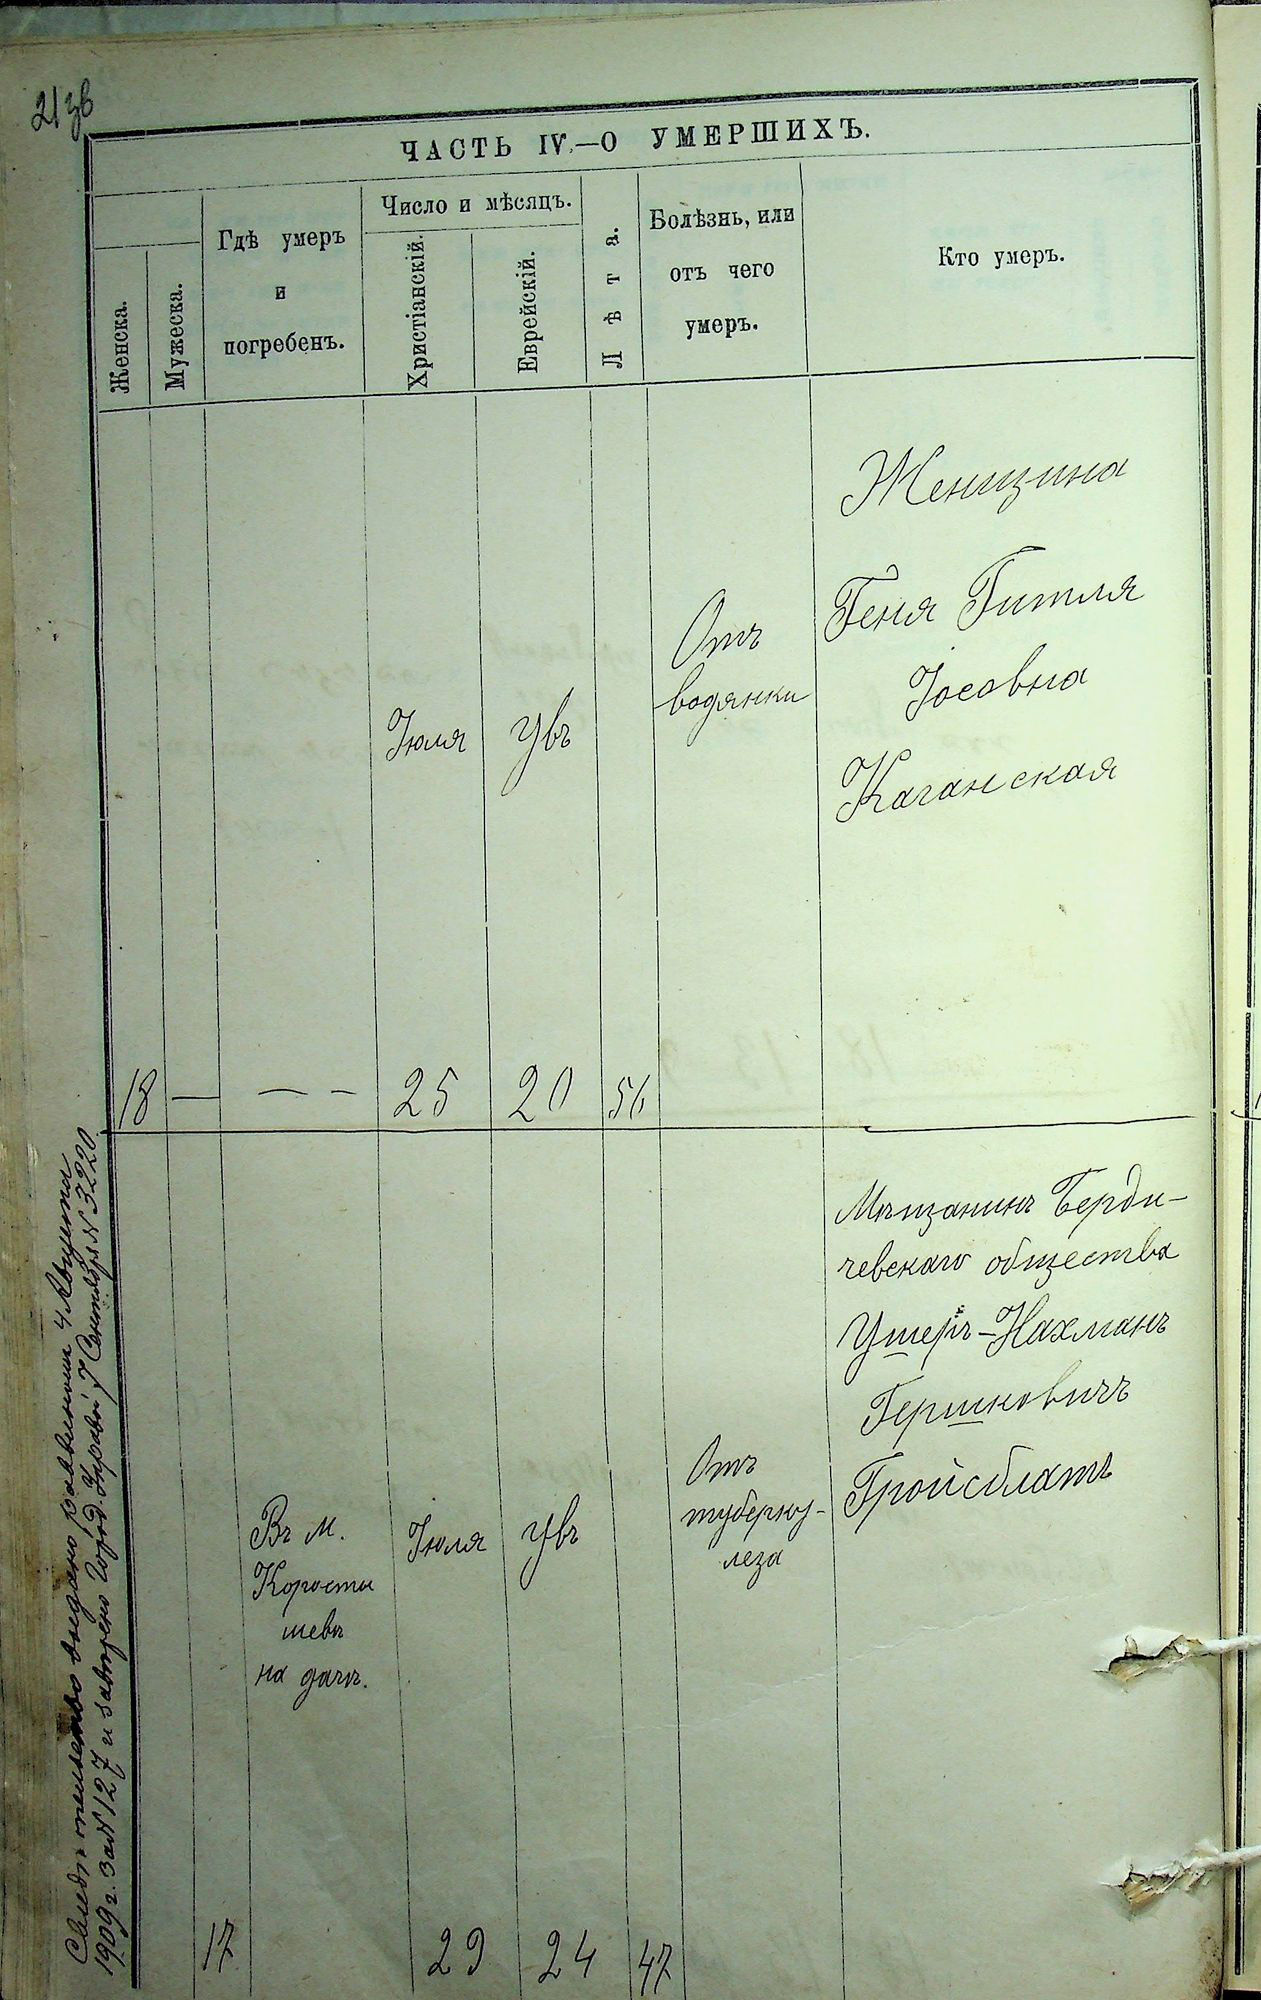 21зв
ЧАСТЬ IV.—О УМЕРШИХЪ.
Женска.
Мужеска.
Гдѣ умеръ
и
погребенъ.
Число и мѣсяцъ.
Христіанскій.
Еврейскій.
Лѣта.
Болѣзнь, или
отъ чего
умеръ.
Кто умеръ.
Женщина
Геня Гитля
Іосовна
Каганская
Отъ
водянки
Іюля
Увъ
18 — — — 25 20 56
Мѣщанинъ Берди-
чевскаго общества
Ушеръ-Нахманъ
Гершковичъ
Гройсблатъ
Отъ
туберку-
леза
Въ м.
Коросты
шевѣ
на дачѣ.
Іюля
Увъ
17 29 24 47
Свидѣтельство выдано раввиномъ 4 Августа
1909 г. за № 127 и заверено Город. Управой 7 Сентября № 3220